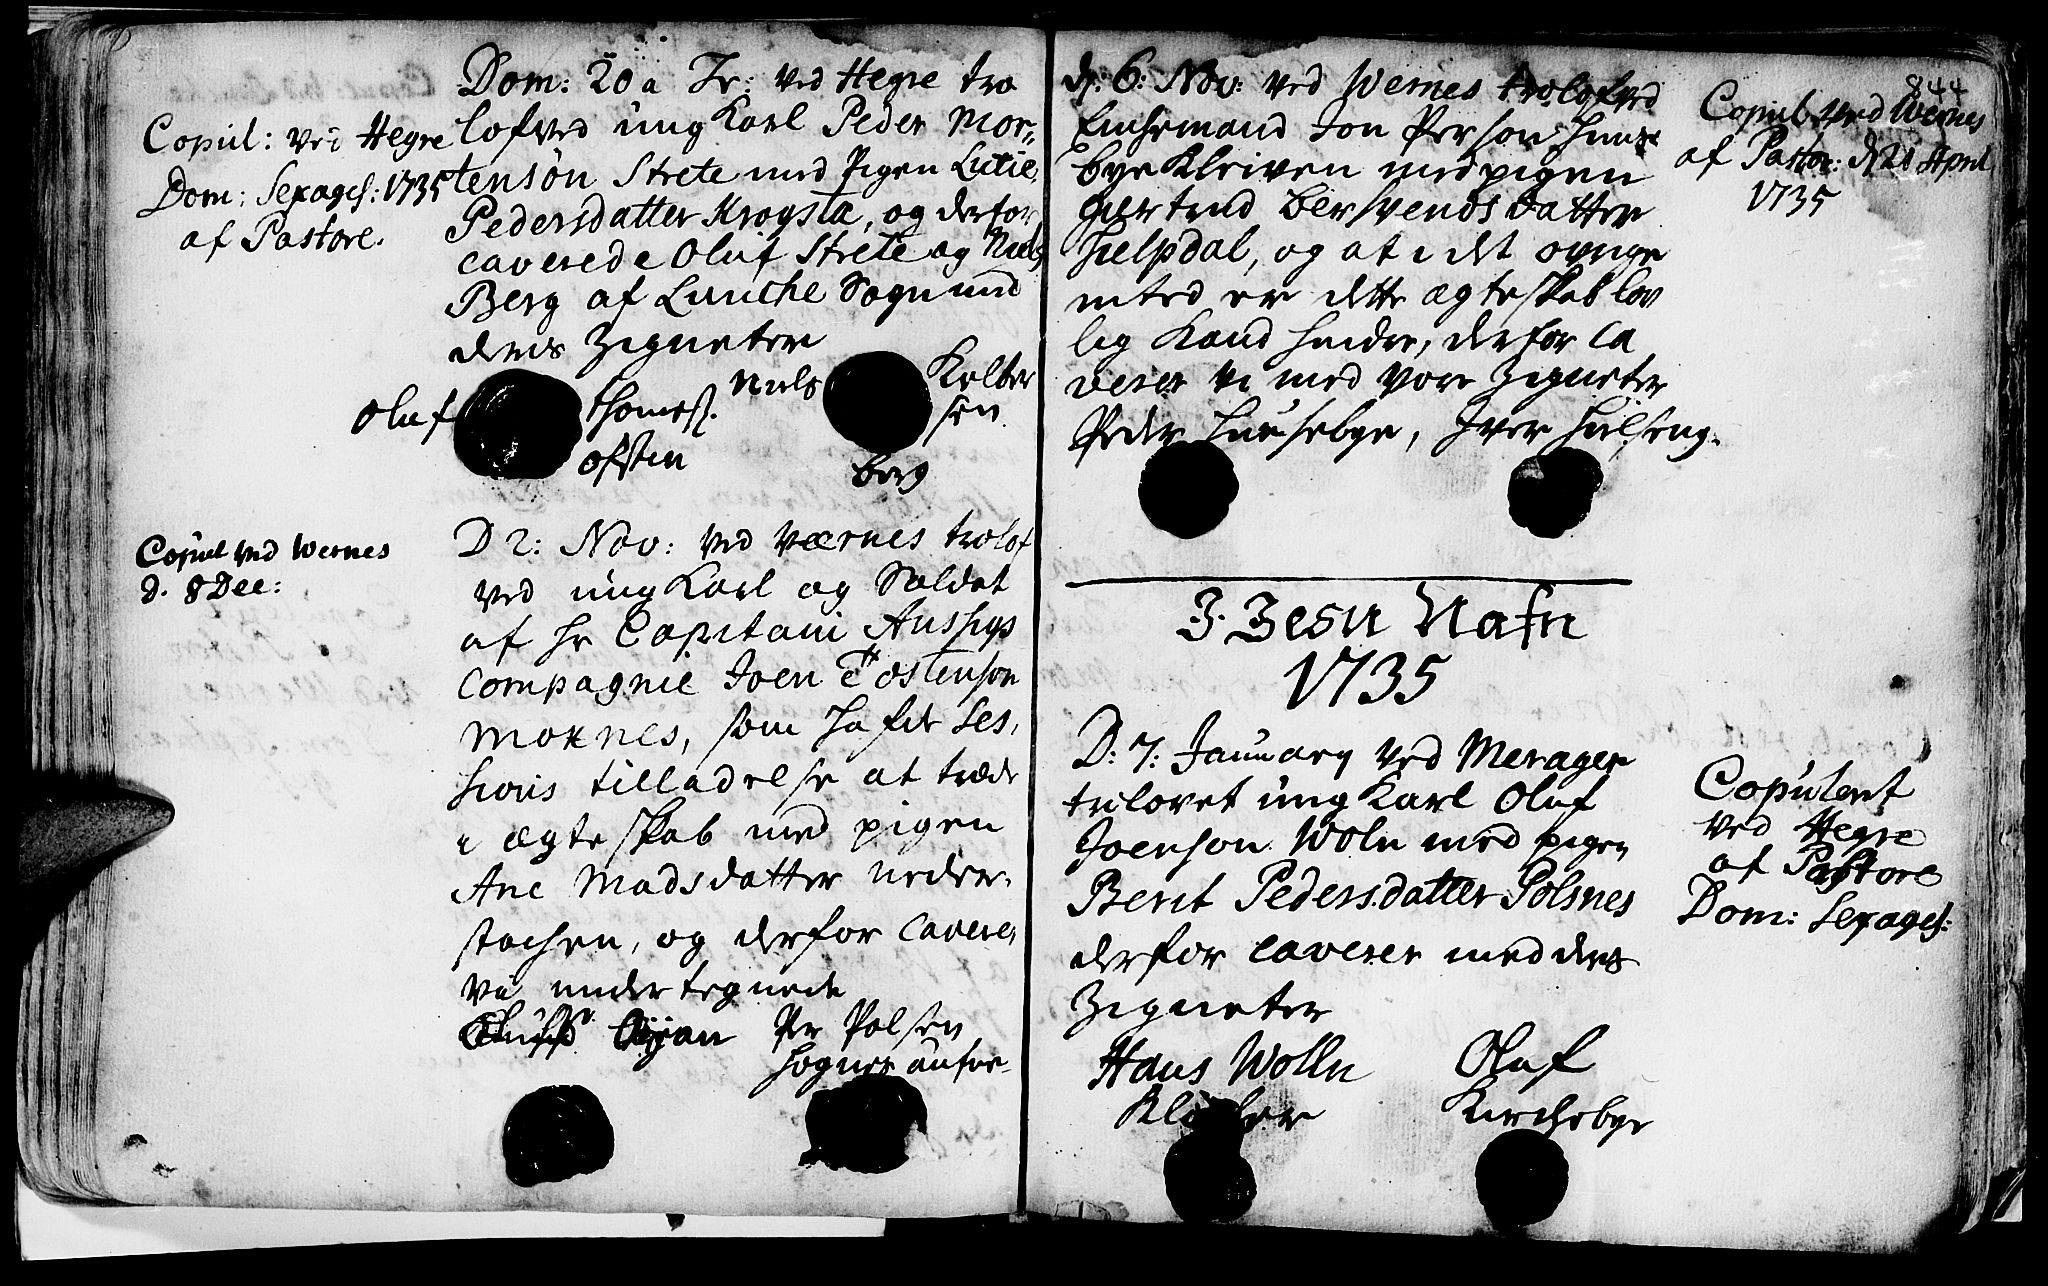 Copul: ved Hegre
Dom: Sexages: 1735
af Pastore.
Dom: 20 a Tr: ved Hegre tro
lofved ung Karl Peder Mor-
tenson Strete med Pigen Lucie
Pedersdatter Krogsta, og derfor
caverede Oluf Strete og Niels
Berg af Lunche Sogn med
deres Zigneter
Oluf Thomess. Niels Kelder
sen
ofsten berg
Copul ved Wernes
d. 8 Dec:
D 2: Nov: ved Værnes trolof
ved ung Karl og Soldat
af Hr Capitain
Compagnie Joen Tostenson
Moxnes, som hafde Ses,
sions tilladelse at træde
i ægteskab med pigen
Ane Madsdatter neder-
stochen, og derfor caverer
vi undertegnede
Øyan Pr Polsen
844
d. 6: Nov: ved Wernes trolofved
Enchemand Jon Person Huuse
bye Kleiven med pigen
Giertrud Bersvends datter
Hielpdal, og at i det øvrige
inted er dette ægteskab lov
lig kand hindre, derfor ca
verer vi med vore Zigneter
Peder Huusebye, Iver Hulseng.
Copul ved Wernes
af Pastor: d. 21 April
1735
I. Jesu Nafn
1735
D: 7: January ved Merager
trolovet ung Karl Oluf
Joenson Woln med pigen
Berit Pedersdatter Polsnes
derfor caverer med deres
Zigneter
Hans Wolln Oluf
Klocher Kirchebye
Copulerit
ved Hegre
af Pastore
Dom: Sexages: